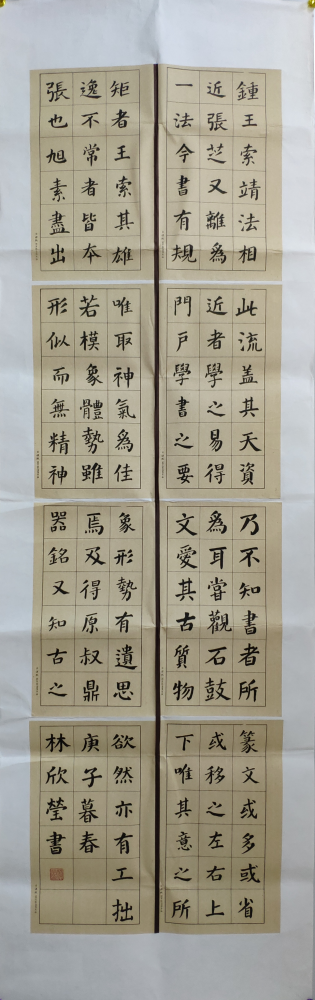 鍾王索靖法相
近張芝又離為
一法今書有規
矩者王索其雄
逸不常者皆本
張也旭素盡出
此流盖其天資
近者學之易得
門戶學書之要
唯取神氣為佳
若模象體勢雖
形似而無精神
乃不知書者所
為耳嘗觀石鼓
文愛其古質物
象形勢有遺思
焉及得原叔鼎
器銘又知古之
篆文或多或省
或移之左右上
下唯其意之所
欲然亦有工拙
庚子暮春
林欣瑩書